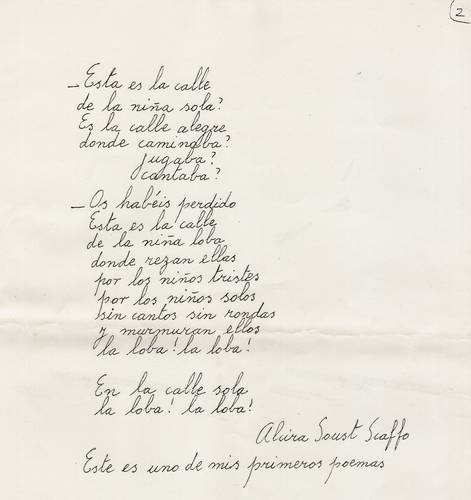 2
_Esta es la calle
de la niña sola?
Es la calle alegre
donde caminaba?
jugaba?
cantaba?
_Os habéis perdido
Esta es la calle
de la niña loba
donde rezan ellas
por los niños tristes
por los niños solos
sin cantos sin rondas
y murmuran ellos
la loba! la loba!
En la calle sola
la loba! la loba!
Alcira Soust Scaffo
Este es uno de mis primeros poemas